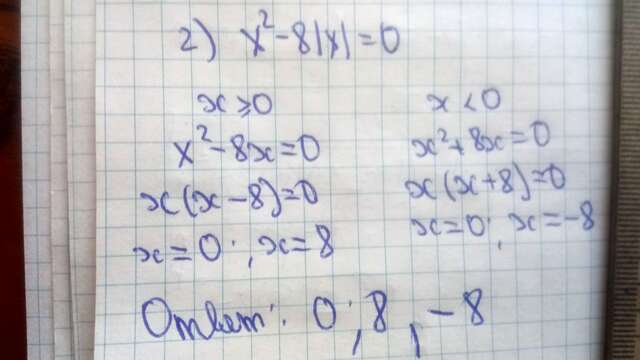 2) x² - 8|x| = 0
x ≥ 0
x² - 8x = 0
x(x - 8) = 0
x = 0; x = 8
x < 0
x² + 8x = 0
x(x + 8) = 0
x = 0; x = -8
Ответ: 0; 8, -8